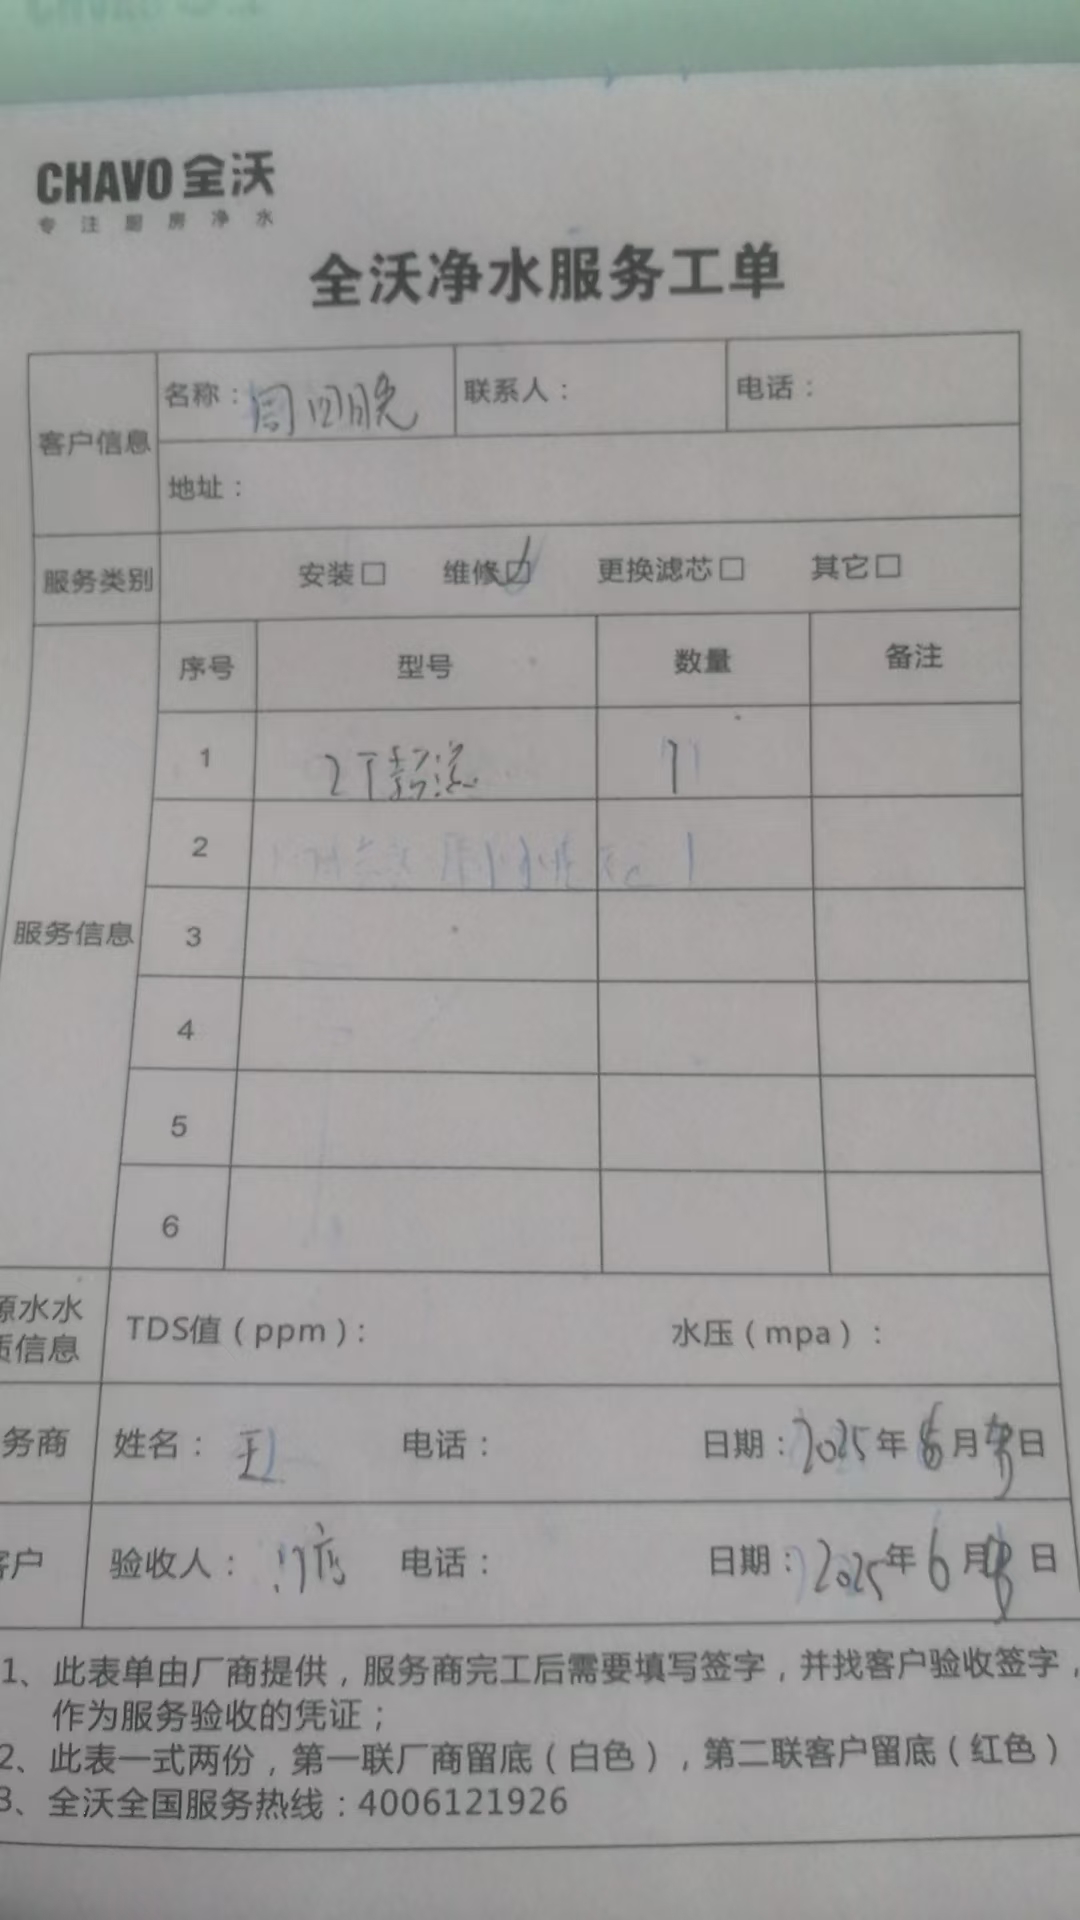 CHAVO 全沃
专注厨房净水
全沃净水服务工单
客户信息 名称： 联系人： 电话：
地址：
服务类别 安装□ 维修☑ 更换滤芯□ 其它□
服务信息 序号 型号 数量 备注
1 1
2 1
3
4
5
6
源水水质信息 TDS值（ppm）： 水压（mpa）：
务商 姓名：王 电话： 日期：2025年6月 日
客户 验收人： 电话： 日期：2025年6月 日
1、此表单由厂商提供，服务商完工后需要填写签字，并找客户验收签字，
作为服务验收的凭证；
2、此表一式两份，第一联厂商留底（白色），第二联客户留底（红色）
3、全沃全国服务热线：4006121926